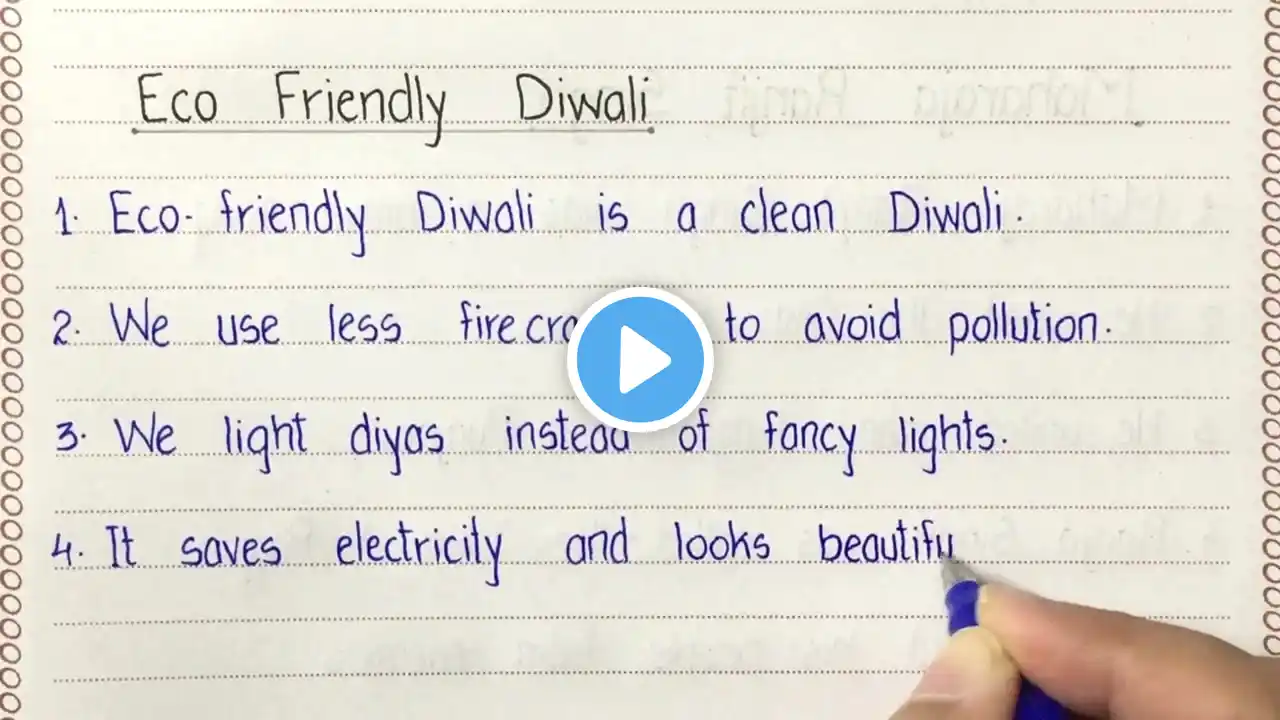 Eco Friendly Diwali
1. Eco-friendly Diwali is a clean Diwali.
2. We use less to avoid pollution.
3. We light diyas instead of fancy lights.
4. It saves electricity and looks beautifu